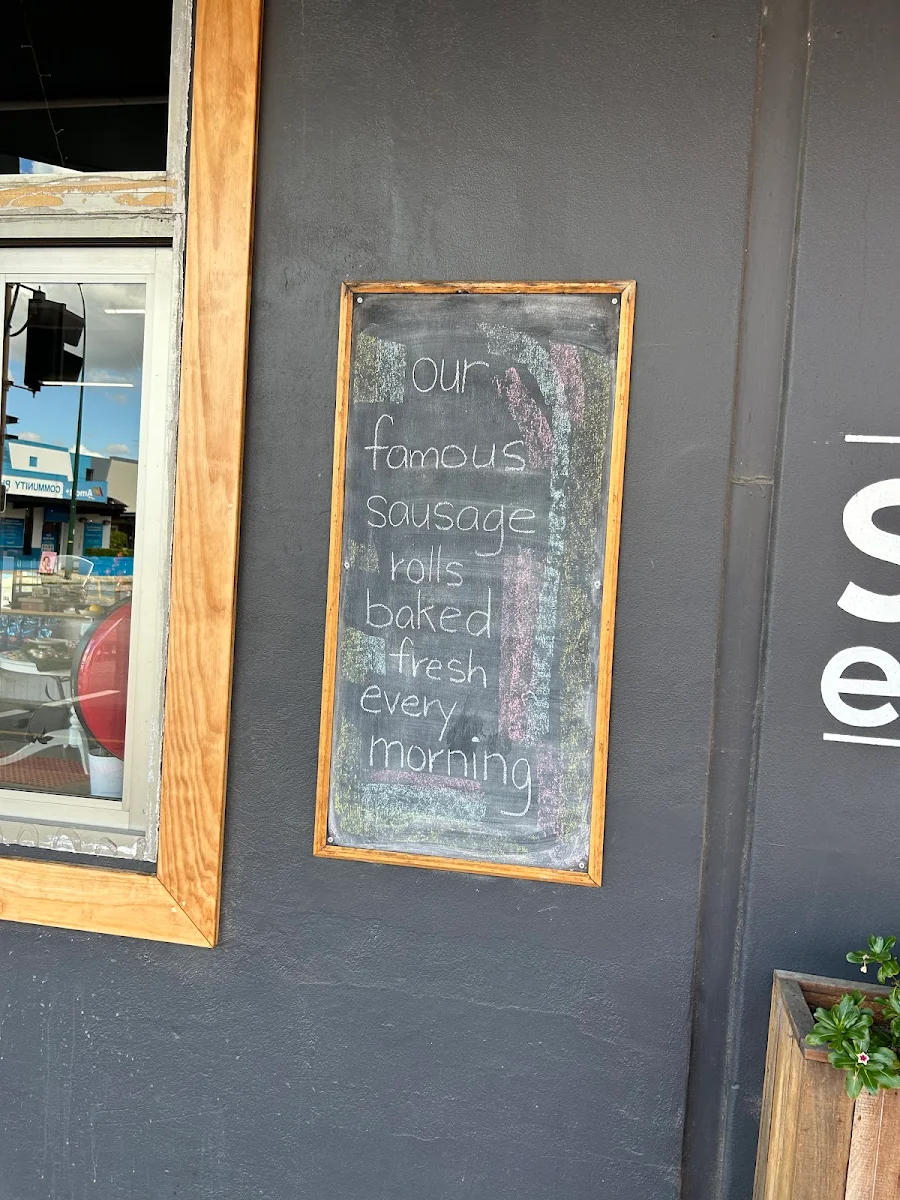 our
famous
sausage
rolls
baked
fresh
every
morning
S
e
COMMUNITY